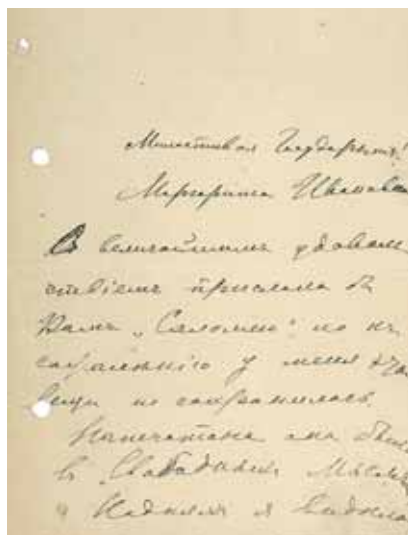 Милостивая Государыня!
Маргарита Ивановна
Съ величайшимъ удоволь
ствіемъ прислала бъ
Вамъ „Саломею" но къ
сожаленію у меня эта
вещи не сохранилось.
Напечатана она была
въ Свободныхъ Мысляхъ
я видѣла